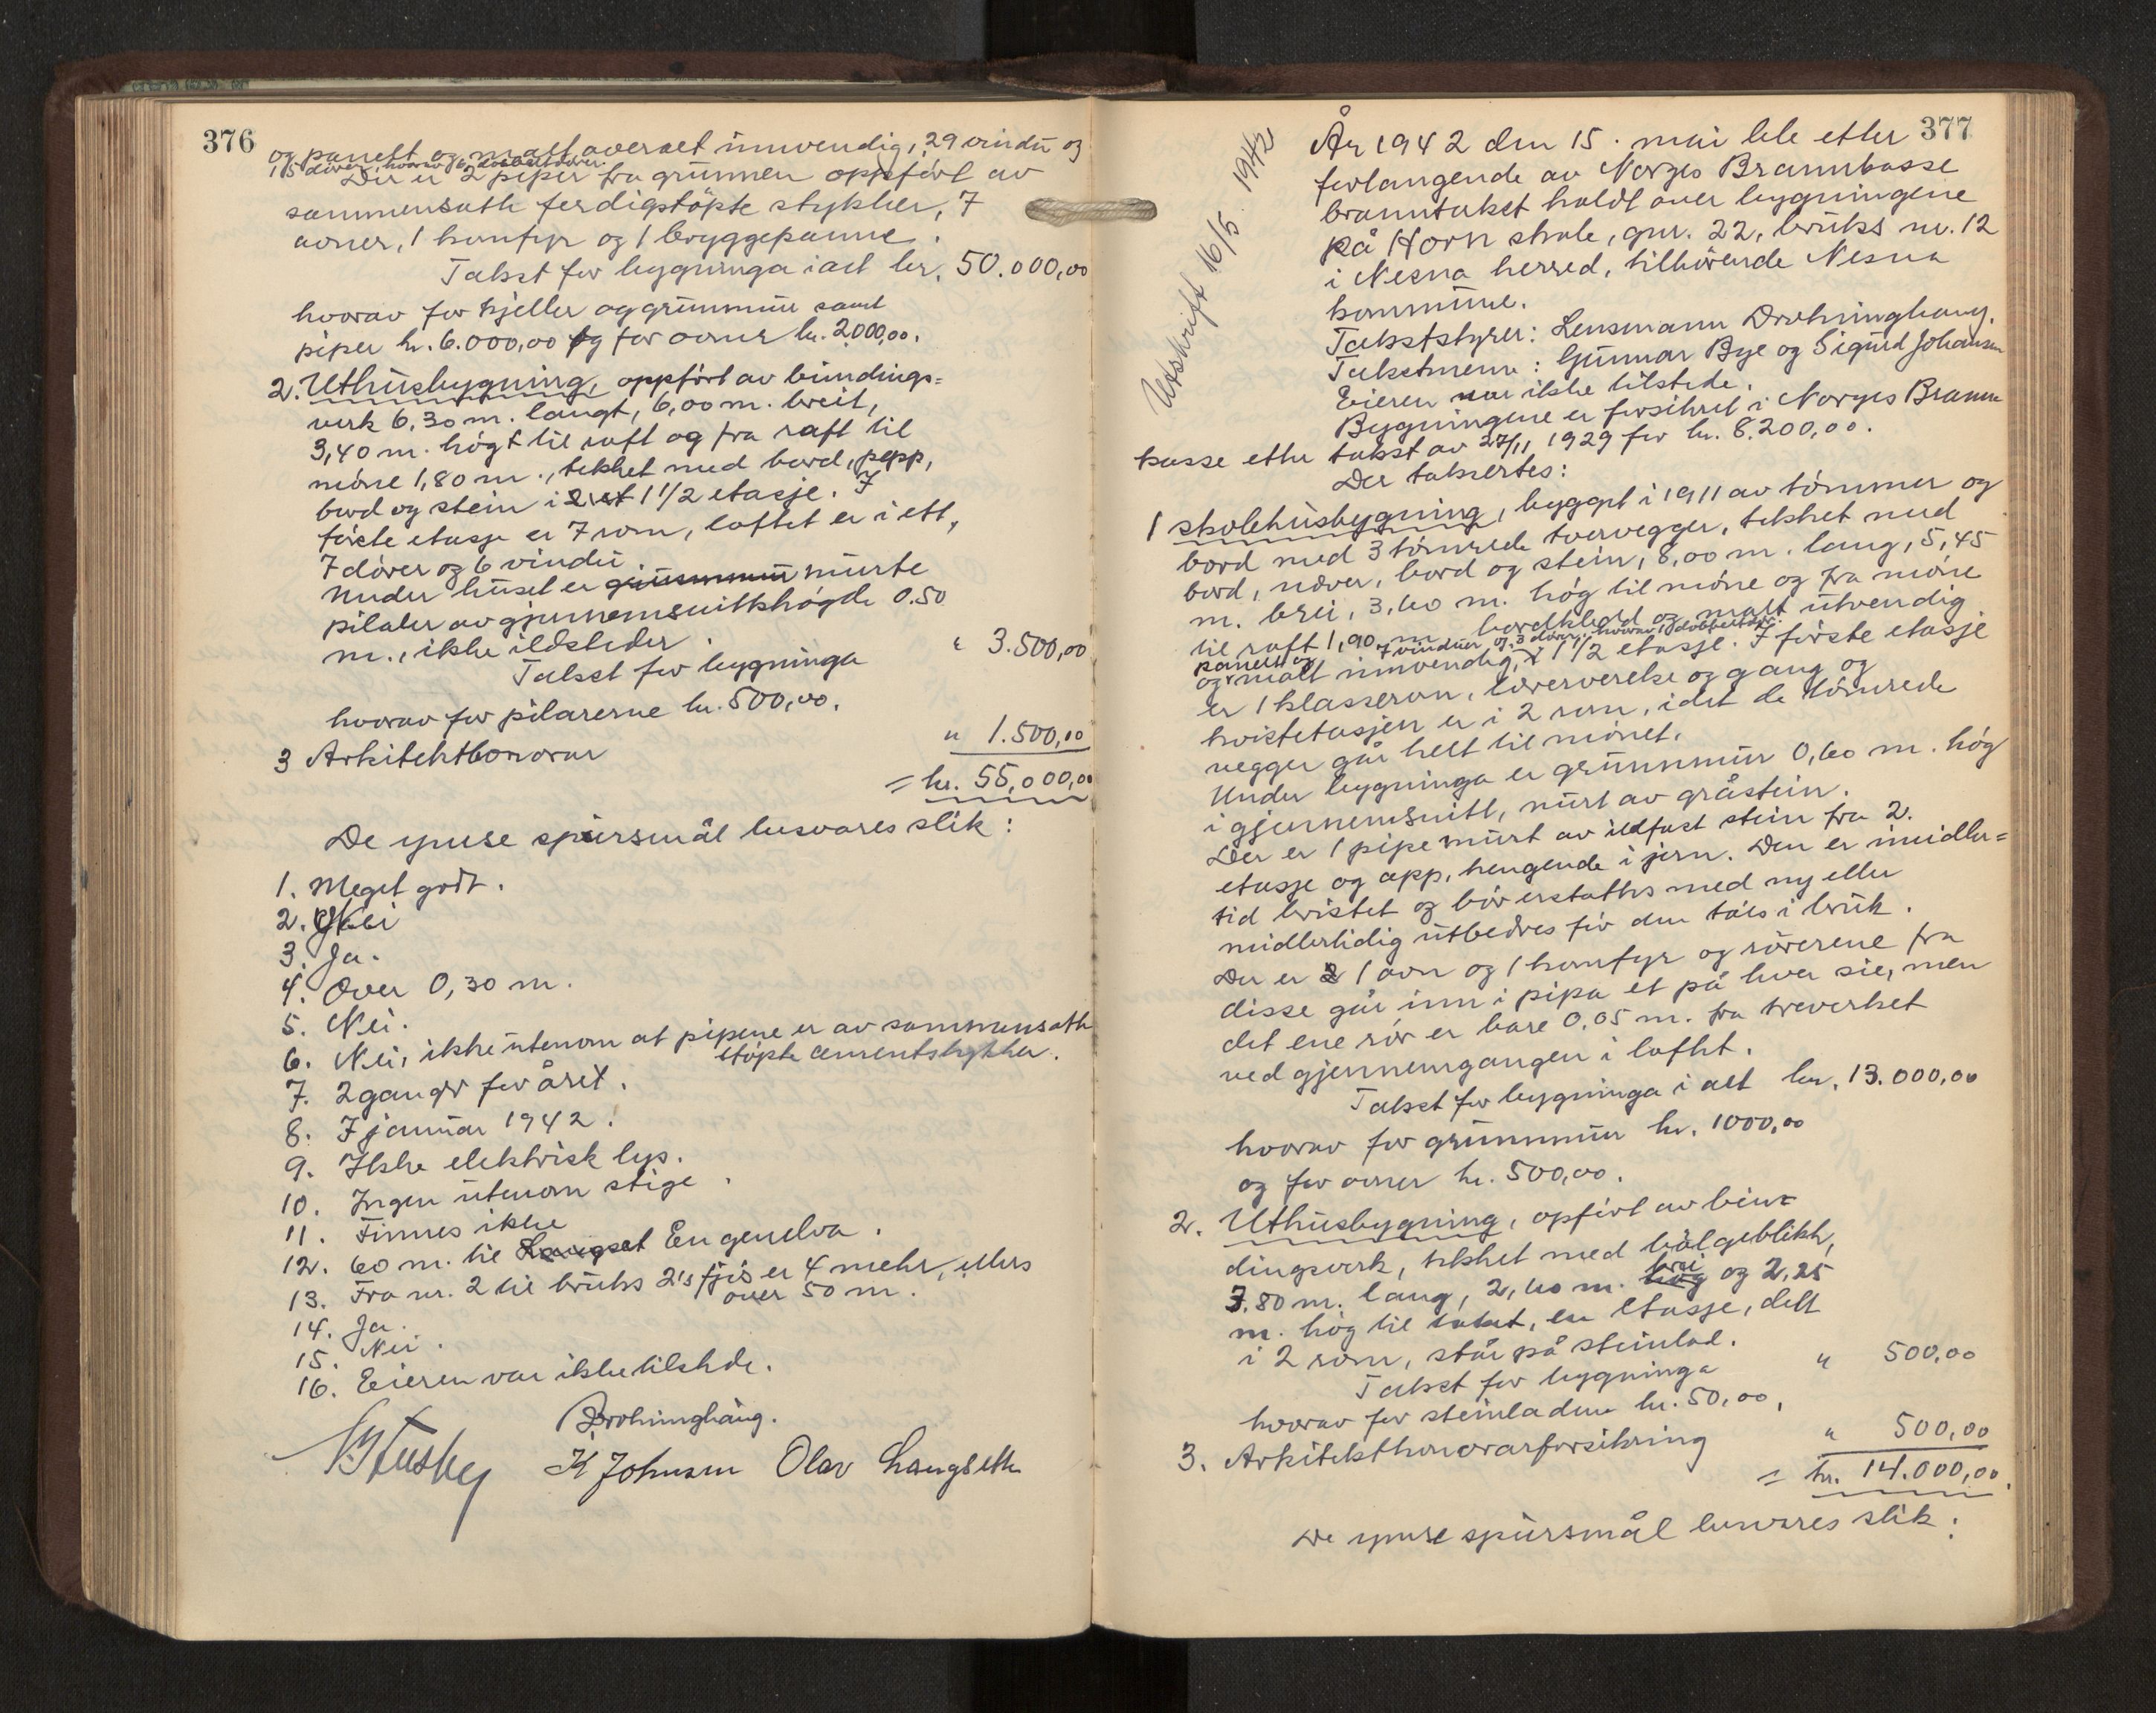 376
og panelt og malt overalt innvendig, 29 vindu og
15 dører, hvorav 6 dobbeltdører.
Der er 2 piper fra grunnen oppført av
sammensatte ferdigstöpte stykker, 7
ovner, 1 komfyr og 1 bryggepanne.
Takst for bygninga i alt kr. 50.000,00
hvorav for kjeller og grunnmur samt
piper kr. 6.000,00 og for ovner kr. 2000,00.
2. Uthusbygning, oppfört av bindings=
verk 6,30 m. langt, 6,00 m. breit,
3,40 m. högt til raft og fra raft til
möne 1,80 m., tekket med bord, papp,
bord og stein i 1 1/2 etasje. I
förste etasje er 7 rom, loftet er i ett,
7 dörer og 6 vindu.
Under huset er grunnmur murte
pilaler av gjennemsnittshögde 0.50
m., ikke ildsteder.
Takst for bygninga " 3.500,00
hvorav for pilarerne kr. 500,00.
3 Arkitekthonorar " 1.500,00
= kr. 55,000,00
De ymse spursmål besvares slik:
1. Meget godt.
2. Nei
3. Ja.
4. Over 0,30 m.
5. Nei.
6. Nei, ikke utenom at pipene er av sammensatte
støpte cementstykker.
7. 2 ganger for året.
8. I januar 1942.
9. Ikke elektrisk lys.
10. Ingen utenom stige.
11. Finnes ikke
12. 60 m. til Langset Engenelva.
13. Fra nr. 2 til bruks 2's fjös er 4 meter, ellers
over 50 m.
14. Ja.
15. Nei.
16. Eieren var ikke tilstede.
Drohninghaug.
K Johnsen Olav Langseth
377
Utskrift 16/5 1942
År 1942 den 15. mai ble etter
forlangende av Norges Brannkasse
branntakst holdt over bygningene
på Horn skole, gnr. 22, bruks nr. 12
i Nesna herred, tilhörende Nesna
kommune.
Takststyrer: Lensmann Drohninghaug.
Takstmenn: Gunnar Bye og Sigurd Johansen
Eieren var ikke tilstede.
Bygningene er forsikret i Norges Brann
kasse etter takst av 27/11 1929 for kr. 8.200,00.
Der takseres:
1 skolehusbygning, bygget i 1911 av tömmer og
bord med 3 tömrede tvervegger, tekket med
bord, never, bord og stein, 8,00 m. lang, 5,45
m. brei, 3,60 m. høg til möne og fra möne
til raft 1,90 m. bordkledd og malt utvendig
panelt og 7 vinduer og 3 dører, hvorav 1 dobbeltdör.
og malt innvendig, i 1 1/2 etasje. I förste etasje
er 1 klasserom, lærerverelse og gang og
kvistetasjen er i 2 rom, idet de tömrede
vegger går helt til mönet.
Under bygninga er grunnmur 0,60 m. hög
i gjennemsnitt, murt av gråstein.
Der er 1 pipe murt av ildfast stein fra 2.
etasje og opp, hengende i jern. Den er imidler=
tid bristet og bör erstattes med ny eller
midlertidig utbedres för den tas i bruk.
Der er 1 ovn og 1 komfyr og rörerene fra
disse går inn i pipa et på hver sie, men
det ene rör er bare 0.05 m. fra treverket
ved gjennemgangen i loftet.
Takst for bygninga i alt kr. 13.000,00
hvorav for grunnmur kr. 1000,00
og for ovner kr. 500,00.
2. Uthusbygning, opfört av bin=
dingsverk, tekket med bölgeblikk,
3.80 m. lang, 2,60 m. høg brei og 2,25
m. hög til taket, en etasje, delt
i 2 rom, står på steinlad.
Takst for bygninga " 500,00
hvorav for steinladene kr. 50,00.
3. Arkitekthonorarforsikring " 500,00
= kr. 14.000,00.
De ymse spursmål besvares slik: